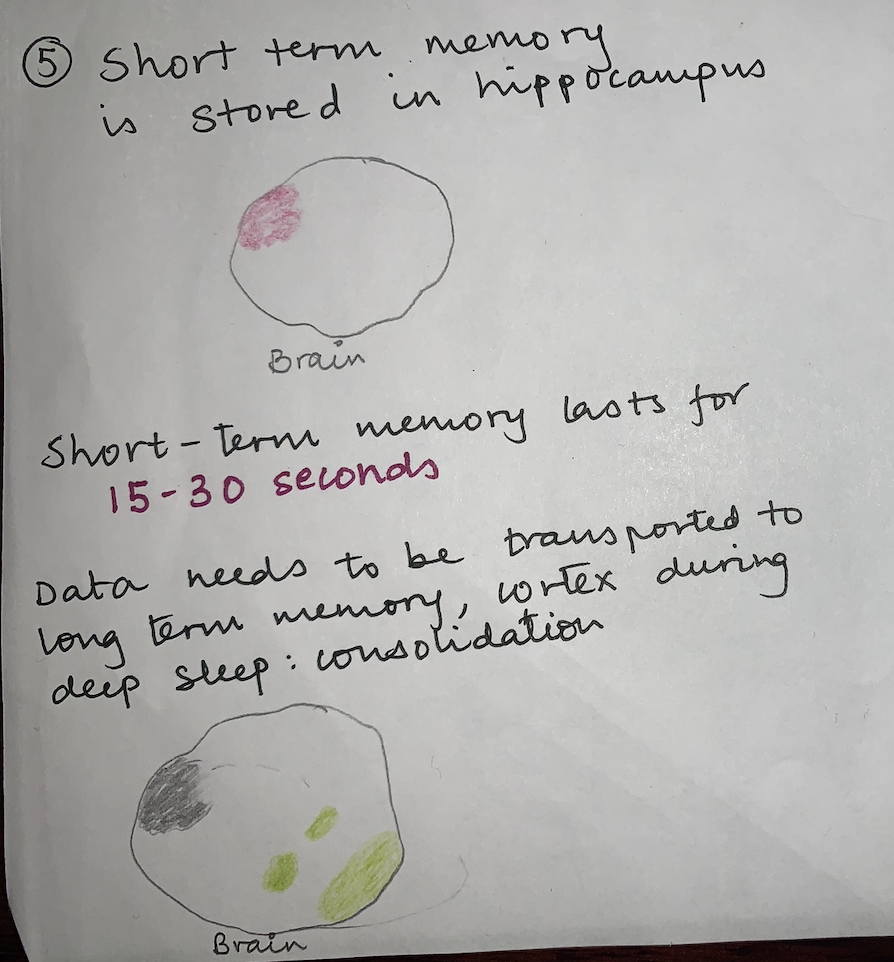 ⑤ Short term memory
is stored in hippocampus
Brain
Short-Term memory lasts for
15-30 seconds
Data needs to be transported to
long term memory, cortex during
deep sleep: consolidation
Brain